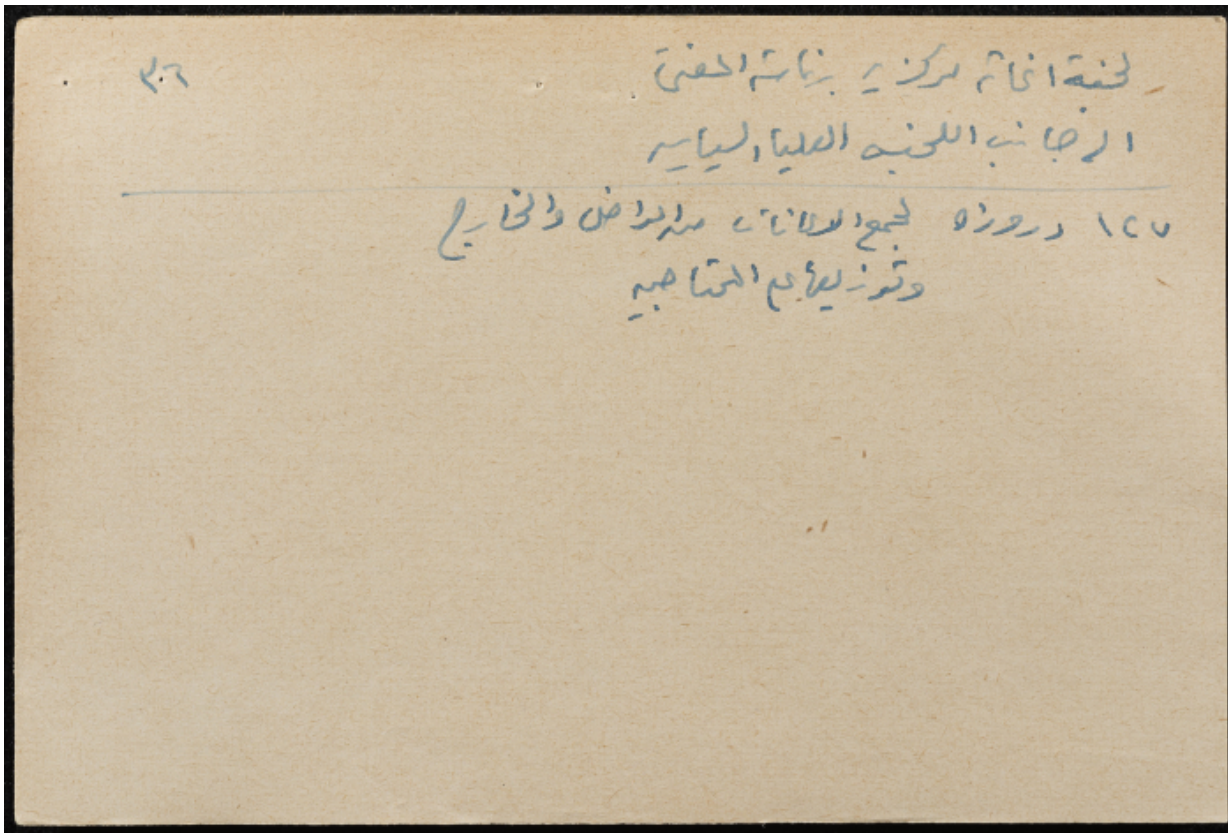 لجنة اغاثة مركزية برئاسة المفتي ٣٦
الى جانب اللجنه العليا السياسيه
١٢٧ دروزه لجمع الاعانات من الداخل والخارج
وتوزيعها على المحتاجين